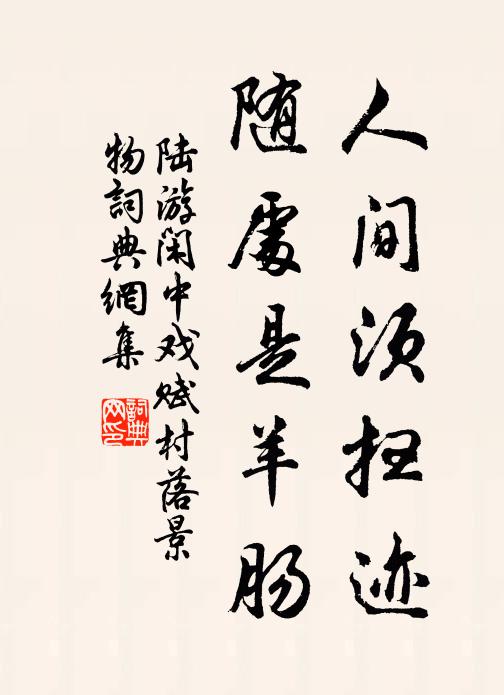 人间须扫迹
随處是羊肠
陆游闲中戏赋村落景
物詞典網集
詞典
网印